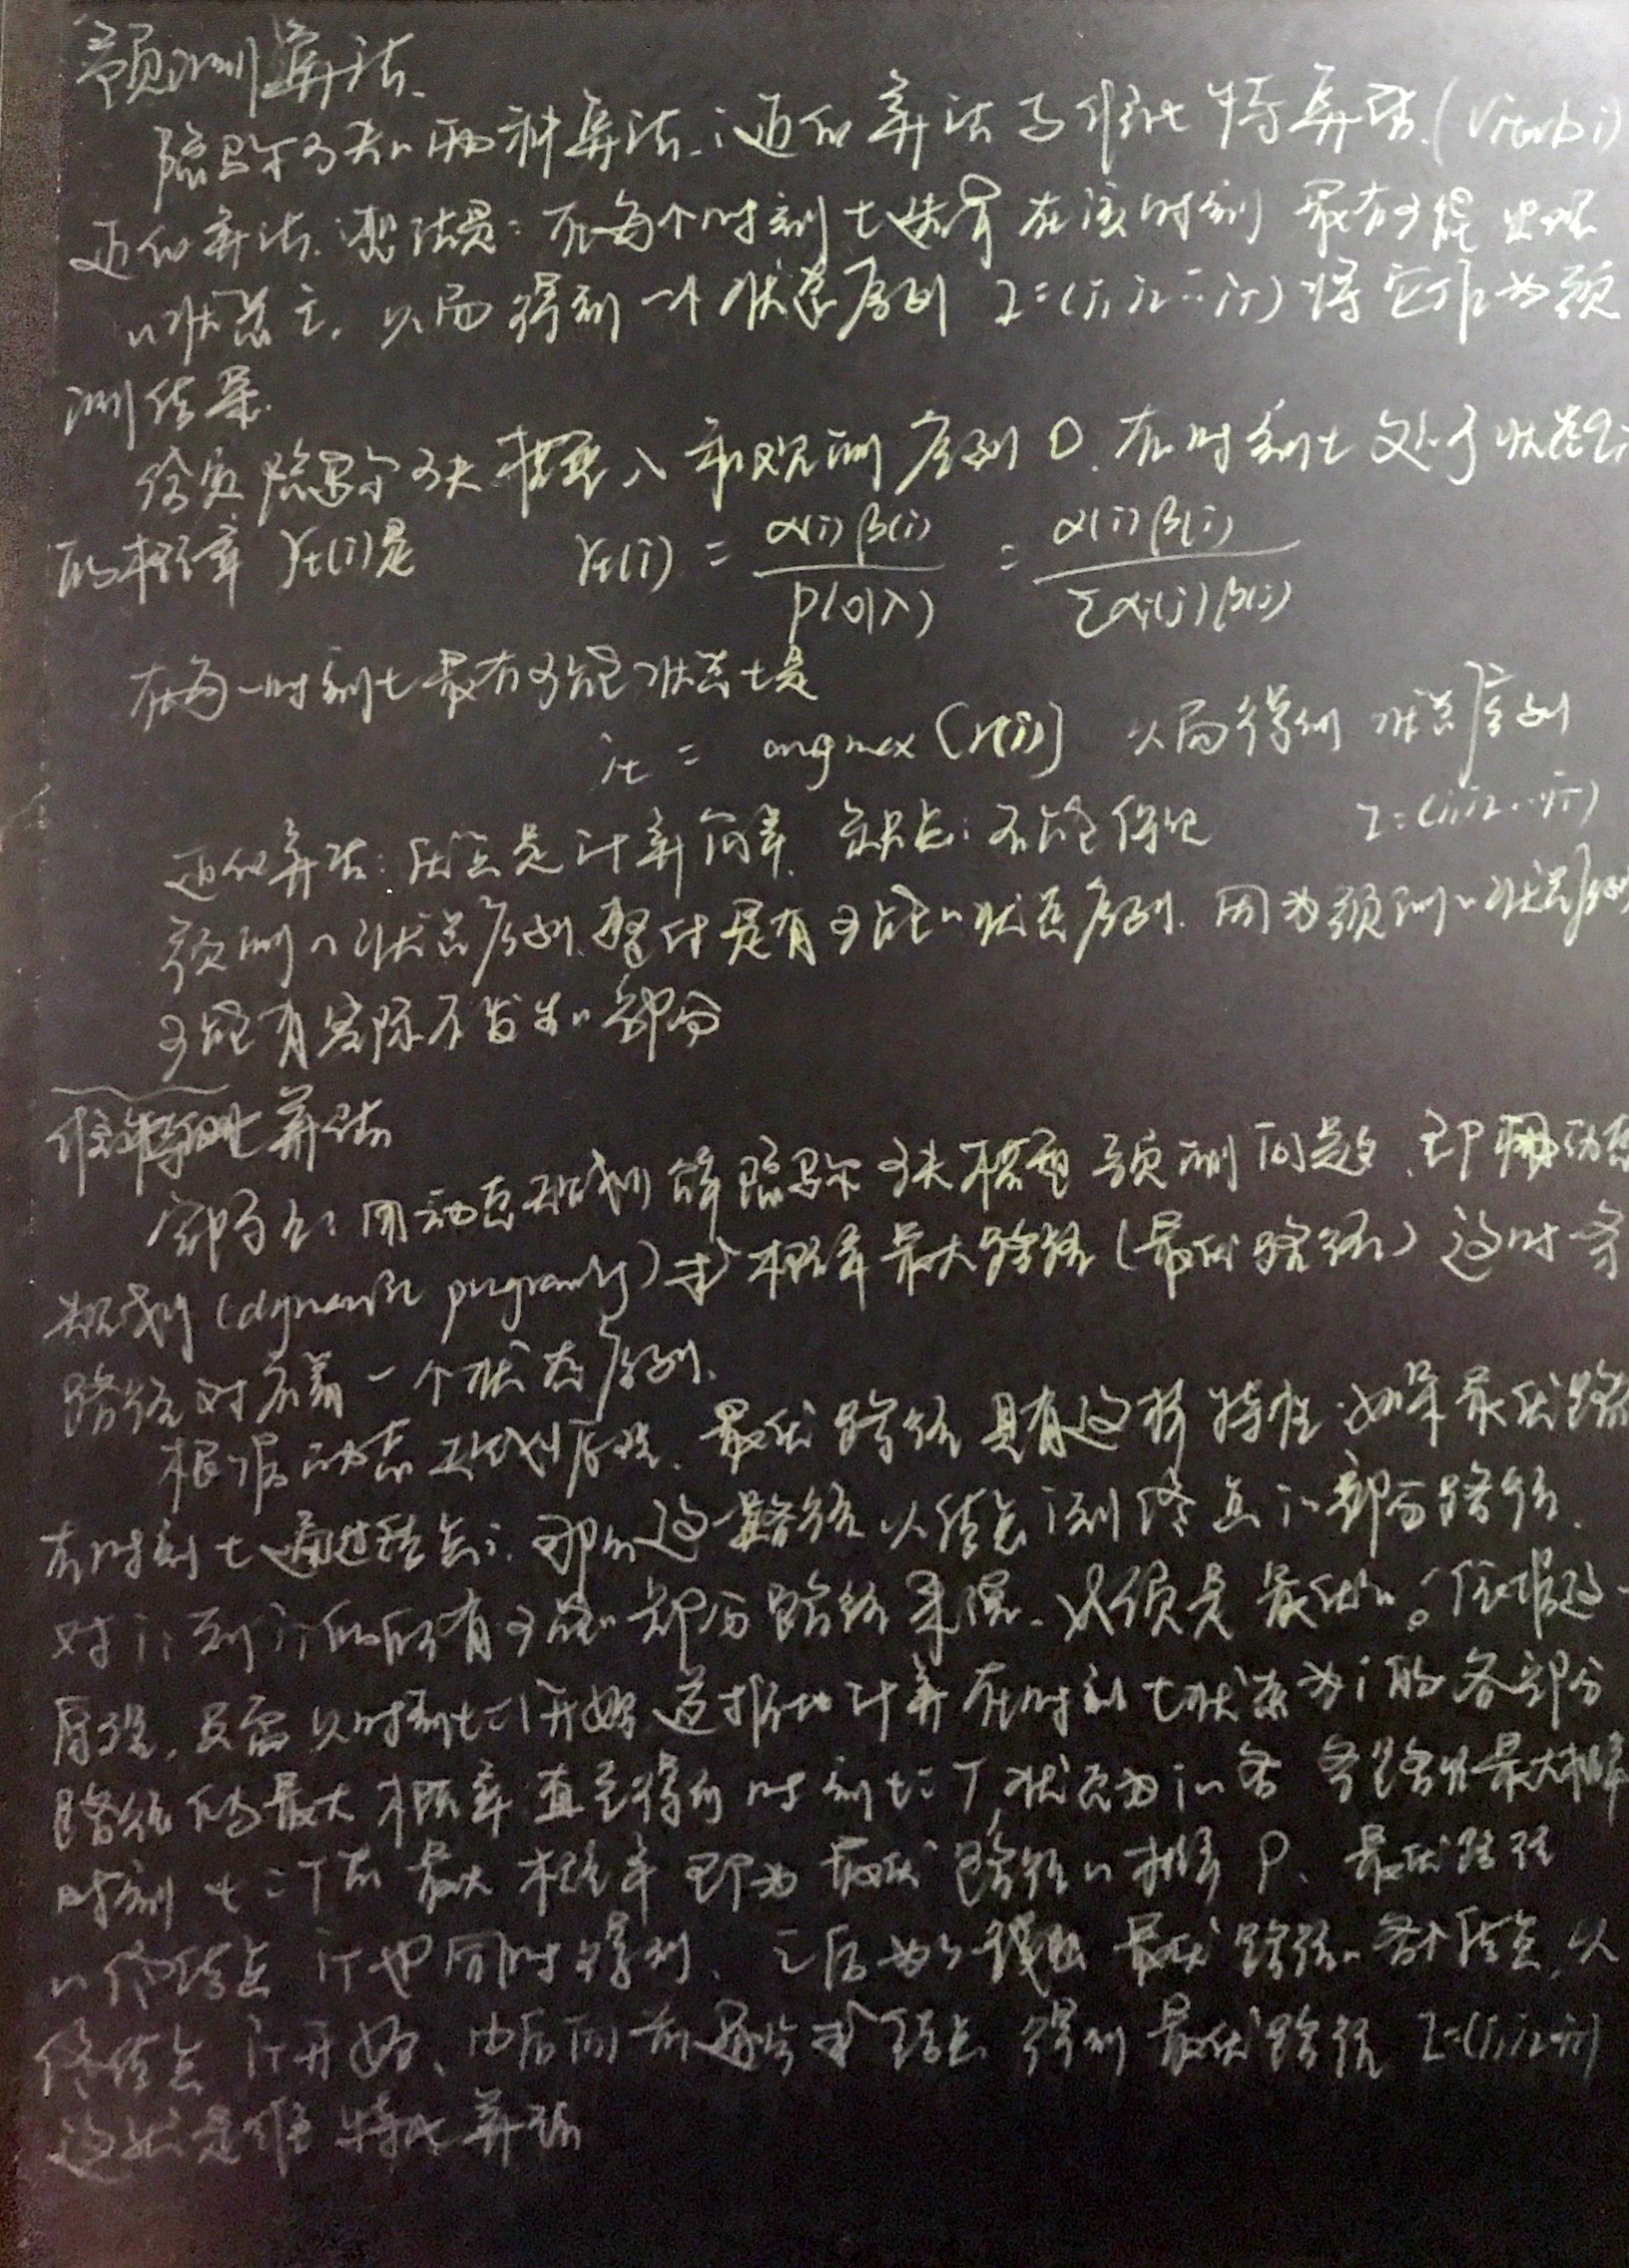 预测算法
隐马尔可夫的两种算法:近似算法与维比特算法(Viterbi)
近似算法想法是:在每个时刻t选择在该时刻最有可能出现
的状态i,从而得到一个状态序列 I=(i1 i2 … iT) 将它作为预
测结果.
给定隐马尔可夫模型λ和观测序列O.在时刻t处于状态qi
的概率 γt(i)是 γt(i) = α(i)β(i) / P(O|λ) = α(i)β(i) / Σα(j)β(j)
在每一时刻t最有可能状态t是
it = argmax[γ(i)] 从而得到状态序列
I=(i1 i2 … iT)
近似算法:优点是计算简单 缺点:不能保证
预测的状态序列整体是有可能的状态序列.因为预测的状态序列
可能有实际不发生的部分
维特比算法
用动态规划解隐马尔可夫模型预测问题.即用动态
规划(dynamic programming)求概率最大路径(最优路径)这时一条
路径对应着一个状态序列.
根据动态规划原理.最优路径具有这样特性:如果最优路径
在时刻t通过结点i.那么这一路径从结点i到终点i的部分路径.
对i到i的所有可能的部分路径来说.必须是最优的。依据这一
原理,只需从时刻t=1开始递推地计算在时刻t状态为i的各部分
路径的最大概率直至得到时刻t=T状态为i的各 条路径最大概率
时刻t=T的最大概率即为最优路径的概率P、最优路径
的终结点iT也同时得到、之后为了找出最优路径的各个结点,从
终结点iT开始、由后向前逐步求结点 得到最优路径I=(i1 i2…iT)
这就是维特比算法